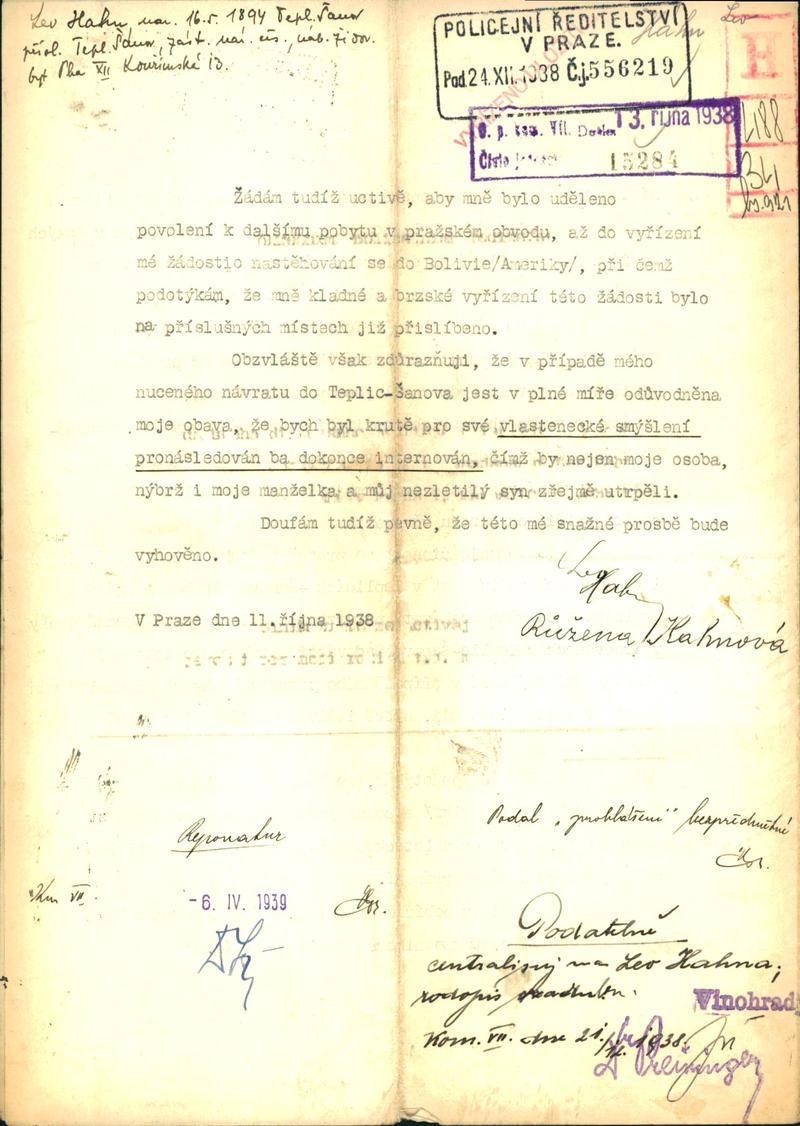 Lev Hahn, nar. 16.5. 1894 Tepl. Šanov
přísl. Tepl. Šanov, zást. nár. , náb. židov.
byt Pha XII Kouřimská 13.
POLICEJNÍ ŘEDITELSTVÍ
V PRAZE.
Pod. 24.XII.1938 Č.j. 556219
Hahn Lev
H
13. října 1938
O. p. kom. VII.
Číslo 15284
L188
Žádám tudíž uctivě, aby mně bylo uděleno
povolení k dalšímu pobytu v pražském obvodu, až do vyřízení
mé žádostio nastěhování se do Bolivie/Ameriky/, při čemž
podotýkám, že mně kladné a brzské vyřízení této žádosti bylo
na příslušných místech již přislíbeno.
Obzvláště však zdůrazňuji, že v případě mého
nuceného návratu do Teplic-Šanova jest v plné míře odůvodněna
moje obava, že bych byl krutě pro své vlastenecké smýšlení
pronásledován ba dokonce internován, čímž by nejen moje osoba,
nýbrž i moje manželka a můj nezletilý syn zřejmě utrpěli.
Doufám tudíž pevně, že této mé snažné prosbě bude
vyhověno.
V Praze dne 11. října 1938
Lev
Hahn
Růžena Hahnová
Podal „prohlášení" bezpředmětné
Reponatur
Km VII.
-6. IV. 1939
Podatelně
centralisuj na Lev Hahna;
rodopis
Vinohrady
Kom. VII. dne 21/12. 1938.